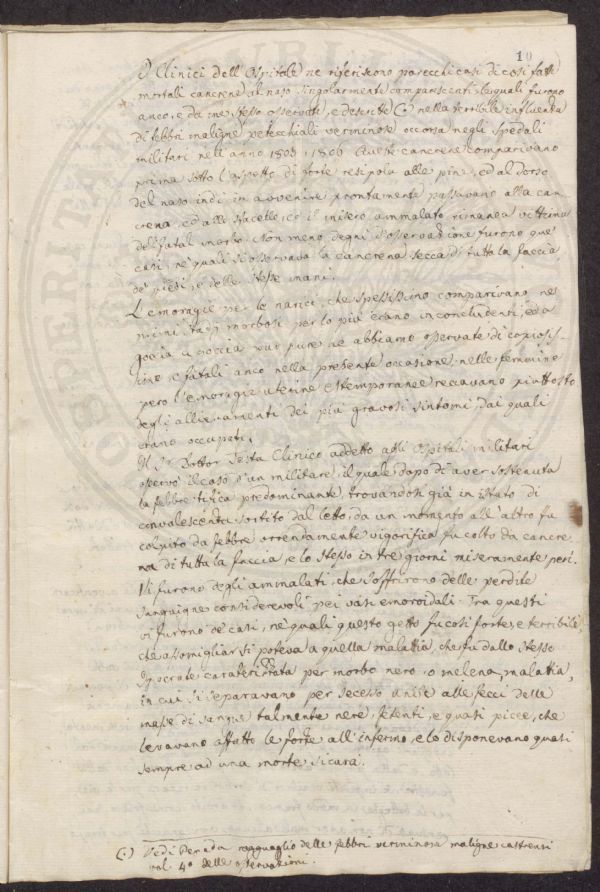 10
I Clinici dell'Ospitale ne riferiscono parecchi casi di così fatte
mortali cancrene al naso singolarmente comparscenti, le quali furono
anco, e da me stesso osservate, e descritte (·) nella terribile influenza
di febbri maligne petecchiali verminose occorsa negli Spedali
militari nell'anno 1805, 1806. Queste cancrene comparivano
prima sotto l'aspetto di forte resipola alle pine, ed al dorso
del naso indi in avvenire prontamente passavano alla can-
crena, ed allo sfacello, ed il misero ammalato rimanea vittima
del fatal morbo. Non meno degni d'osservazione furono que'
casi, ne' quali si osservava la cancrena secca di tutta la faccia
de' piedi, e delle stesse mani.
L'emoragie per le narici, che spessissimo comparivano ne'
primi stadj morbosi per lo più erano inconcludenti, ed a
goccia a goccia pur pure ne abbiamo osservate di copiosis-
sime, e fatali anco nella presente occasione, nelle femmine
però l'emoragie uterine estemporanee recavano piuttosto
degli allievamenti dei più gravosi sintomi, dai quali
erano occupati.
Il Sr. Dottor Testa Clinico addetto agli Ospitali militari
osservò il caso d'un militare, il quale dopo di aver sostenuta
la febbre tifica predominante, trovandosi già in istato di
convalescenza, sortito dal letto, da un momento all'altro fu
colpito da febbre orrendamente vigorifica fu colto da cancre
na di tutta la faccia, e lo stesso in tre giorni miseramente perì.
Vi furono degli ammalati, che soffrirono delle perdite
sanguigne considerevoli pei vasi emoroidali. Tra questi
vi furono de' casi, ne' quali questo getto fu così forte, e terribile,
che assomigliar si poteva a quella malattia, che fu dallo stesso
Ipocrate caratterizzata per morbo nero o melena, malattia,
in cui si separavano per secesso anise alle fecci delle
masse di sangue talmente nere, fetenti, e quasi picee, che
levavano affatto le forze all'infermo, e lo disponevano quasi
sempre ad una morte sicura.
(·) Vedi Penada ragguaglio delle febbri verminose maligne castrensi
vol. 4º delle osservazioni.